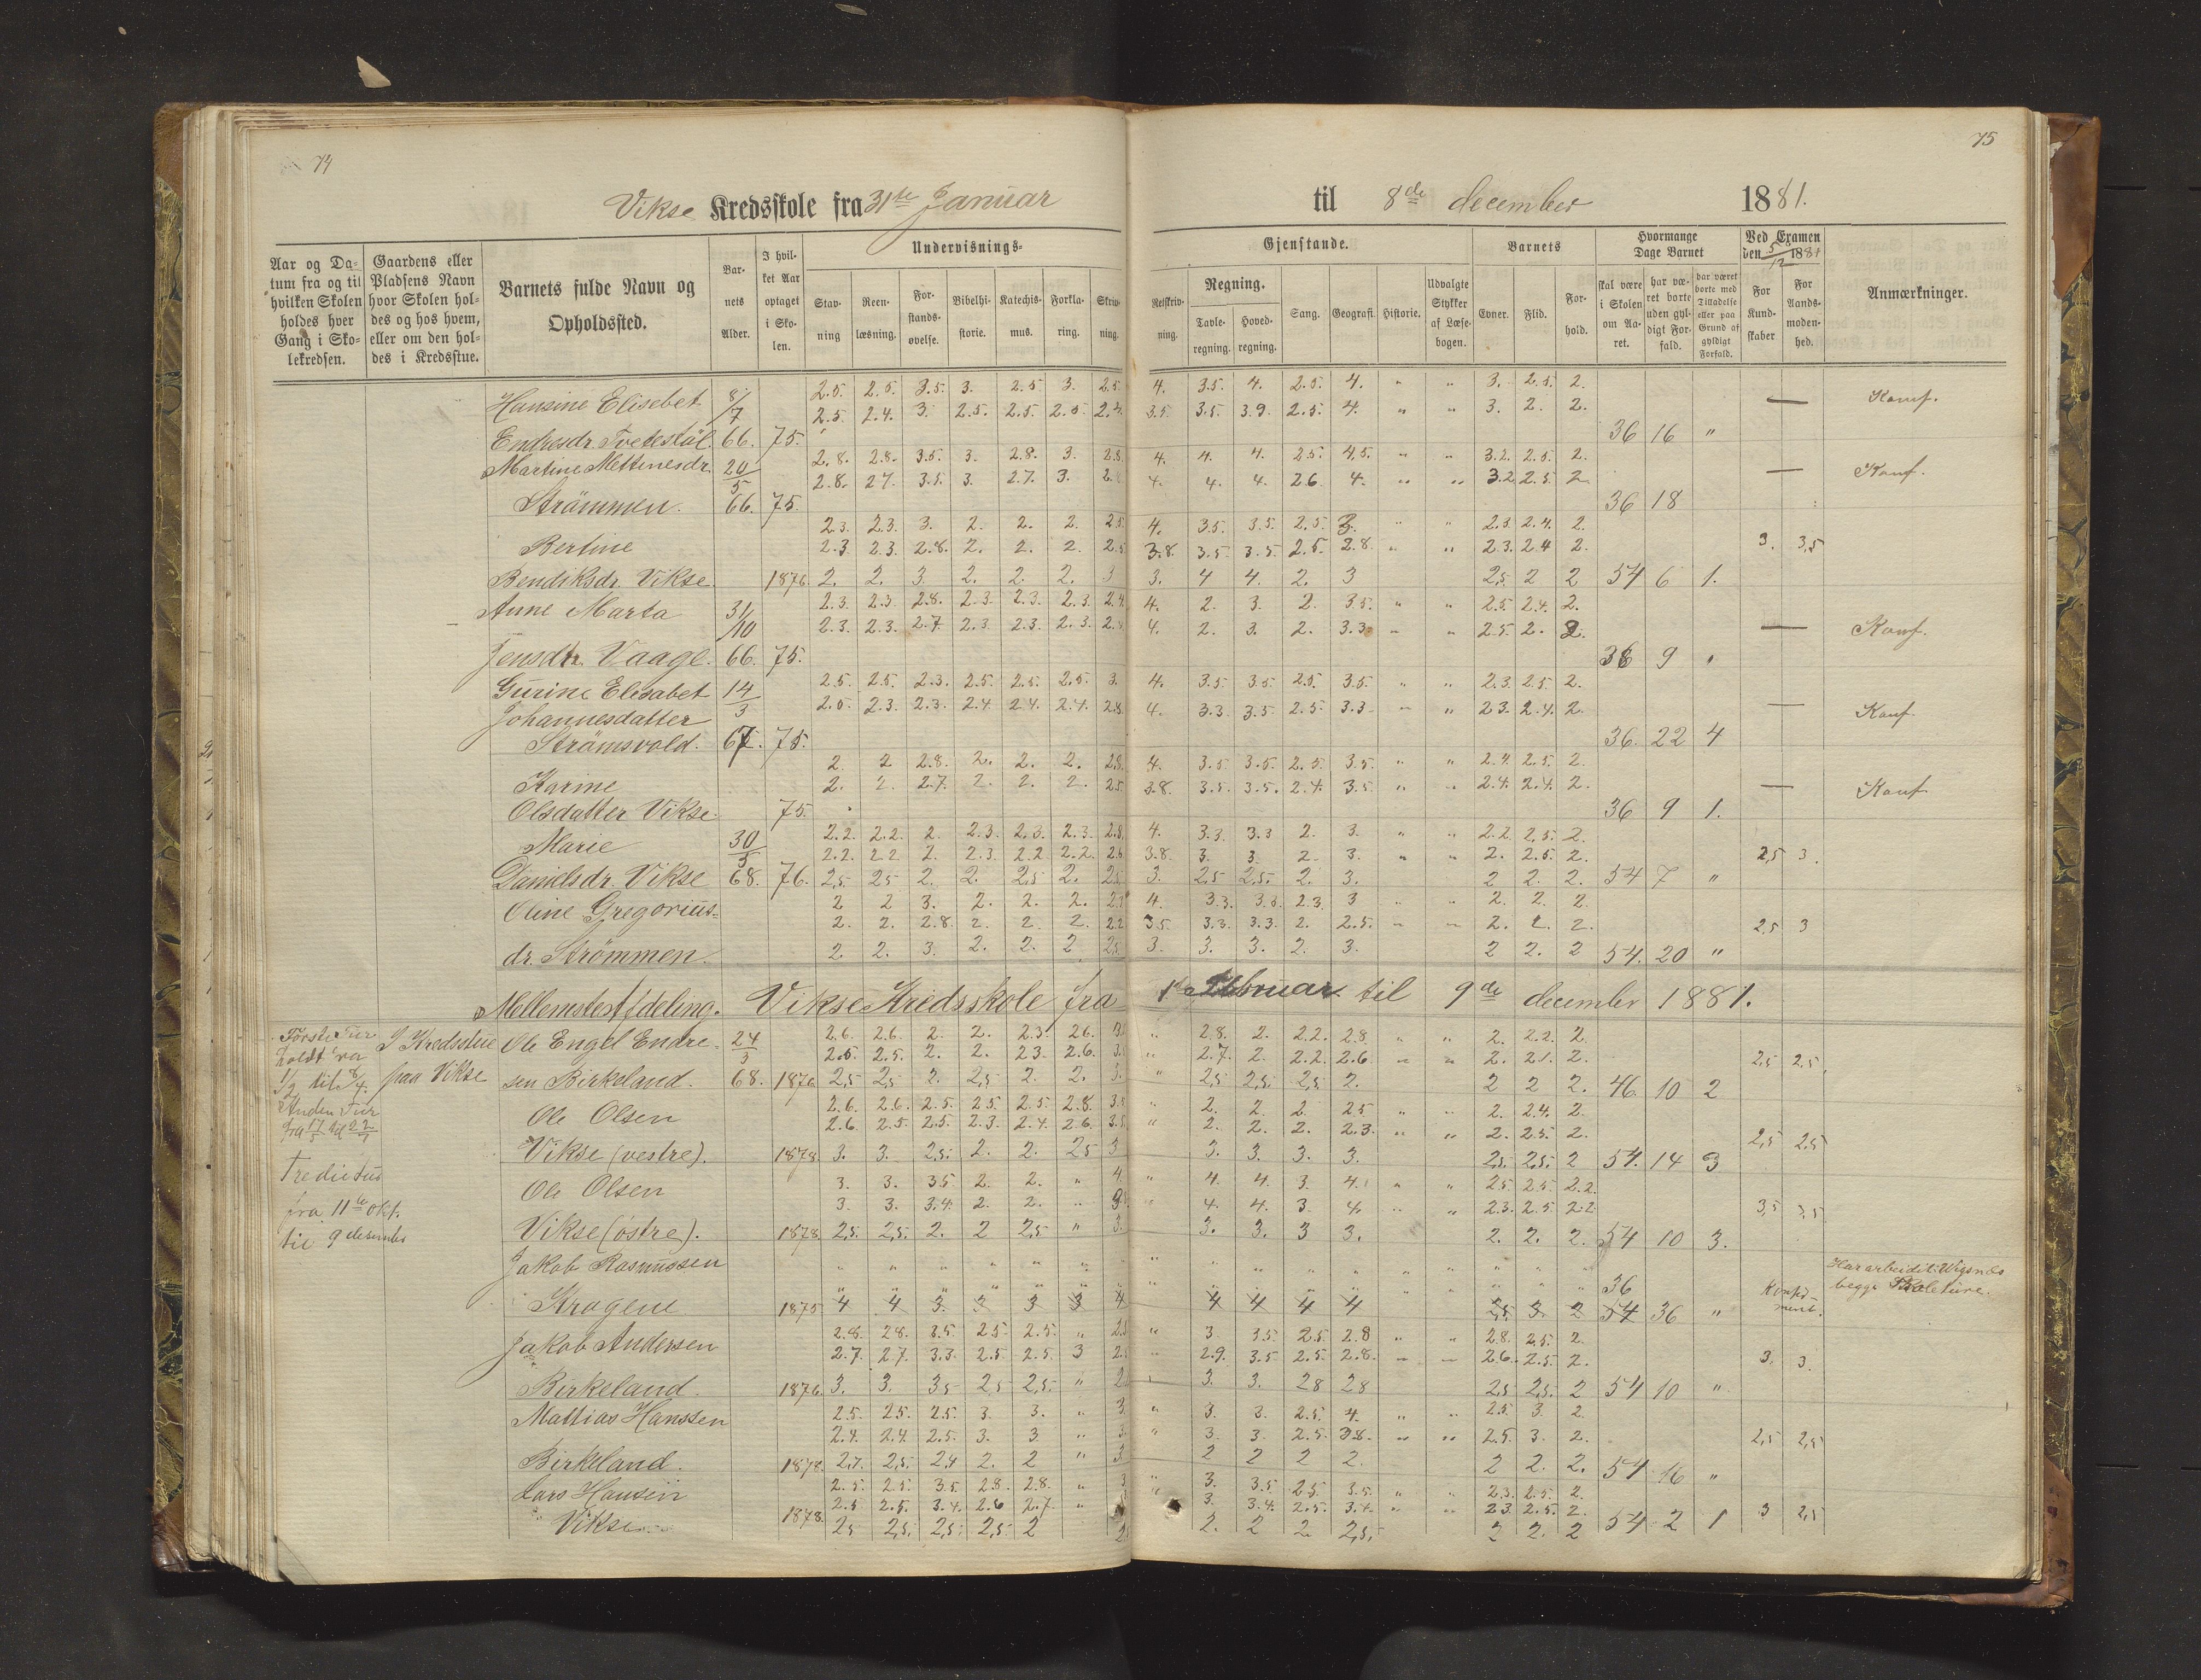 74
75
Vikse Kredsskole fra 31te Januar til 8de december 1881.
Aar og Datum fra og til hvilken Skolen holdes hver Gang i Skolekredsen.
Gaardens eller Pladsens Navn hvor Skolen holdes og hos hvem, eller om den holdes i Kredsstue.
Barnets fulde Navn og Opholdssted.
Barnets Alder.
I hvilket Aar optaget i Skolen.
Undervisnings-
Stavning
Reenlæsning.
Forstandsøvelse.
Bibelhistorie.
Katechismus.
Forklaring.
Skrivning.
Gjenstande.
Retskrivning.
Regning.
Tavleregning.
Hovedregning.
Sang.
Geografi.
Historie.
Udvalgte Stykker af Læsebogen.
Barnets
Evner.
Flid.
Forhold.
Hvormange Dage Barnet
skal være i Skolen om Aaret.
har været borte uden gyldigt Forfald.
har været borte med Tilladelse eller paa Grund af gyldigt Forfald.
Ved Examen den 5/12 1881
For Kundskaber
For Aandsmodenhed.
Anmærkninger.
Hansine Elisebet 8/7 2.5. 2.5. 3.5. 3. 2.5 3. 2.5. 4. 3.5. 4. 2.5. 4. " " 3. 2.5. 2. — Konf.
2.5. 2.4. 3. 2.5. 2.5. 2.5. 2.4. 3.5. 3.5. 3.9. 2.5. 4. " " 3. 2. 2.
Endresdr. Tvetestöl. 66. 75. 36 16 "
Martine Mettinesdr. 20/5 2.8. 2.8. 3.5. 3. 2.8. 3. 2.8. 4. 4. 4. 2.5. 4.5. " " 3.2. 2.5. 2. — Konf.
2.8. 2.7. 3.5. 3. 2.7. 3. 4. 4. 4. 2.6 4. " " 3.2 2.5. 2.
Strömmen. 66. 75. 36 18
2.3. 2.3. 3. 2. 2. 2. 2.5 4. 3.5. 3.5. 2.5. 3. " " 2.3. 2.4. 2.
Bertine 2.3 2.3. 2.8. 2. 2. 2. 2.5 3.8. 3.5. 3.5. 2.5. 2.8. " " 2.3. 2.4 2. 3. 3,5
Bendiksdr. Vikse. 1876. 2. 2. 3. 2. 2. 2. 3 3. 4 4. 2. 3 2,5 2 2 54 6 1.
Anne Marta 31/10 2.3. 2.3. 2.8. 2.3. 2.3. 2.3. 2.4. 4. 2. 3. 2. 3.5. " " 2.5. 2.4. 2.
2.3. 2.3. 2.7. 2.3. 2.3. 2.3. 4. 2. 3. 2. 3.3. " " 2.5. 2. 2. — Konf.
Jensdtr. Vaage. 66. 75. 36 9 "
Gurine Elisabet 14/3 2.5. 2.5. 2.3. 2.5. 2.5. 2.5. 3. 4. 3.5. 3.5. 2.5. 3.5. " " 2.3. 2.5. 2.
Johannesdatter 2.5. 2.3. 2.3. 2.4. 2.4. 2.4. 2.8. 4. 3.3. 3.5. 2.5. 3.3. " " 2.3. 2.4. 2. — Konf.
Strömsvold. 67. 75. 36. 22 4
2. 2 2.8. 2. 2. 2. 2.8. 4. 3.5. 3.5. 2.5. 3.5. " " 2.4. 2.5. 2.
Karine 2. 2. 2.7. 2. 2. 2. 2.5 3.8. 3.5. 3.5. 2.4. 3.5. " " 2.4. 2.4. 2. — Konf.
Olsdatter Vikse. 75. 36 9 1.
Marie 30/5 2.2. 2.2. 2. 2.3. 2.3. 2.3. 2.8. 4. 3.3. 3.3 2. 3. " " 2.2. 2.5. 2.
2.2. 2.2. 2. 2.3. 2.2. 2.2. 2.6. 3.8. 3. 3. 2. 3. " " 2. 2.5. 2. 2,5 3.
Danielsdr. Vikse 68. 76. 2,5. 2,5 2. 2. 2,5 2. 2,5 3. 2,5 2,5. 2. 3. 2 2. 2. 54 7 "
Oline Gregorius- 2 2 3. 2. 2. 2. 4. 3.3. 3.3. 2.3. 3 " " 2. 2. 2.
2. 2. 2.8. 2. 2. 2. 2.2 3.5. 3.3. 3.3. 2. 2.5. " " 2. 2. 2. 2,5 3
dr. Strömmen. 2. 2. 3. 2. 2. 2 2,5 3. 3. 3. 2. 3. 2 2. 2 54. 20 "
Mellemste Afdeling. Vikse Kredsskole fra 1ste Februar til 9de december 1881.
Förste Tur holdt fra 1/2 til 8/4.
Anden Tur fra 17/5 til
Tredie tur fra 11te okt. til 9 desember
I Kredsstue paa Vikse
Ole Engel Endre- 24/3 2.6. 2.6. 2. 2. 2.3. 2.6. " 2.8. 2. 2.2. 2.8. " " 2. 2.2. 2.
2.5. 2.5. 2. 2. 2.3. 2.6. 3. " 2.7. 2. 2.2. 2.6. " " 2. 2.1. 2. 2,5 2,5.
sen Birkeland. 68. 1876. 2,5 2,5 2. 2,5 2. 2. 3. " 2,5 2,5. 2,5. 2. 2 2 2. 46 10 2
Ole Olsen 2.6. 2.6. 2.5. 2.5. 2.5. 2.8. 3.5 " 2. 2. 2. 2.5 " " 2. 2.4. 2.
2.6. 2.5. 2.5. 2.3. 2.4. 2.6. 3.5 " 2. 2. 2. 2.3. " " 2. 2.5. 2. 2,5 2,5
Vikse (vestre). 1878. 3. 3. 2,5. 2. 2. 2,5 3 3. 3. 3. 3. 2,5. 2,5. 2 54. 14 3
Ole Olsen 3. 3. 3.5 2. 2. " 4. " 4. 4. 3. 4. " " 2.5 2.5. 2.2.
3. 3. 3.4. 2. 2. " " 4. 4. 3. 4. " " 2.3. 2.5. 2.2. 3,5 3,5
Vikse (östre). 1878. 2,5. 2,5. 2. 2 2,5 " 3. 3. 3. 3 3. 2. 2. 2. 54 10 3.
Jakob Rasmussen Har arbeidet i Wigsnes begge Skoleture.
Kragene 1875. 4 4 3. 3 3 3 4 4 4 4 4 2,5 3. 2 36 54 36 " Konfirmeret.
Jakob Andersen 2.8. 2.8. 3.5. 2.5. 2.5. " " 3. 3.5. 2.5. 2.8 " " 2.8. 2.5. 2.
2.7. 2.7. 3.3. 2.5. 2.5. 3 " 2.9. 3.5 2.5. 2.8. " " 2.6. 2.5. 2. 3. 3.
Birkeland. 1876. 3. 3. 3,5 2,5 2,5. " 3. 3. 2,8 2,8 2,5 2,5. 2 54 10 "
Mattias Hanssen 2.5. 2.5. 2.5. 3. 3. " 3. " 3. 3. 2.5. 4. " " 2.5. 3. 2.
2.4. 2.4. 2.5. 3. 3. " 3. " 3. 3. 2.5. 3.8. " " 2.5. 3. 2. 2,5 2,5
Birkeland. 1878. 2,7. 2,5. 2,4 2. 2 " 3. 2 2 2 2. 2 2. 2. 54 16 "
Lars Hansen 2.5. 2.5. 3.5. 2.8. 2.8. " 3 " 3. 3.5. 2.5. 3.5. " " 2.3. 2.5. 2.
2.5 2.5. 3.4. 2.6 2.7. " 3. 3.4. 2.5. 3.4. " " 2.3. 2.5. 2. 3 2,5
Vikse. 1878. 2,5 2,5. 2,5. 2,5 2 2. 2 2. 2,5. 2 2. 2 54 2 1